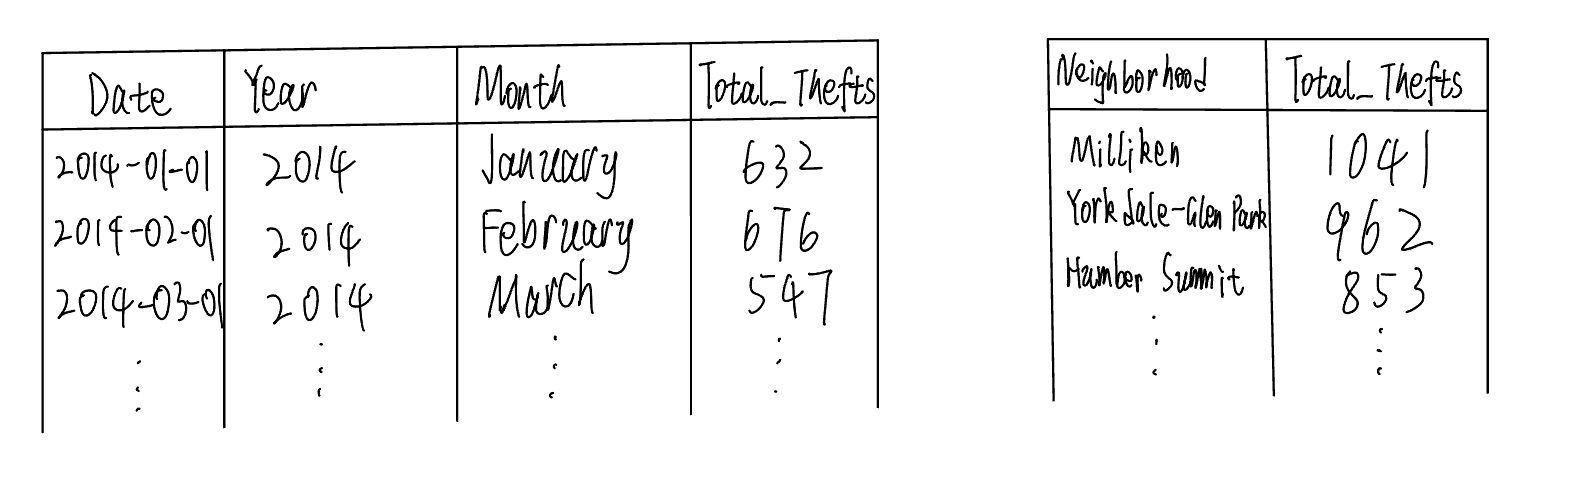 Date Year Month Total_Thefts
2014-01-01 2014 January 632
2014-02-01 2014 February 676
2014-03-01 2014 March 547
Neighborhood Total_Thefts
Milliken 1041
Yorkdale-Glen Park 962
Humber Summit 853